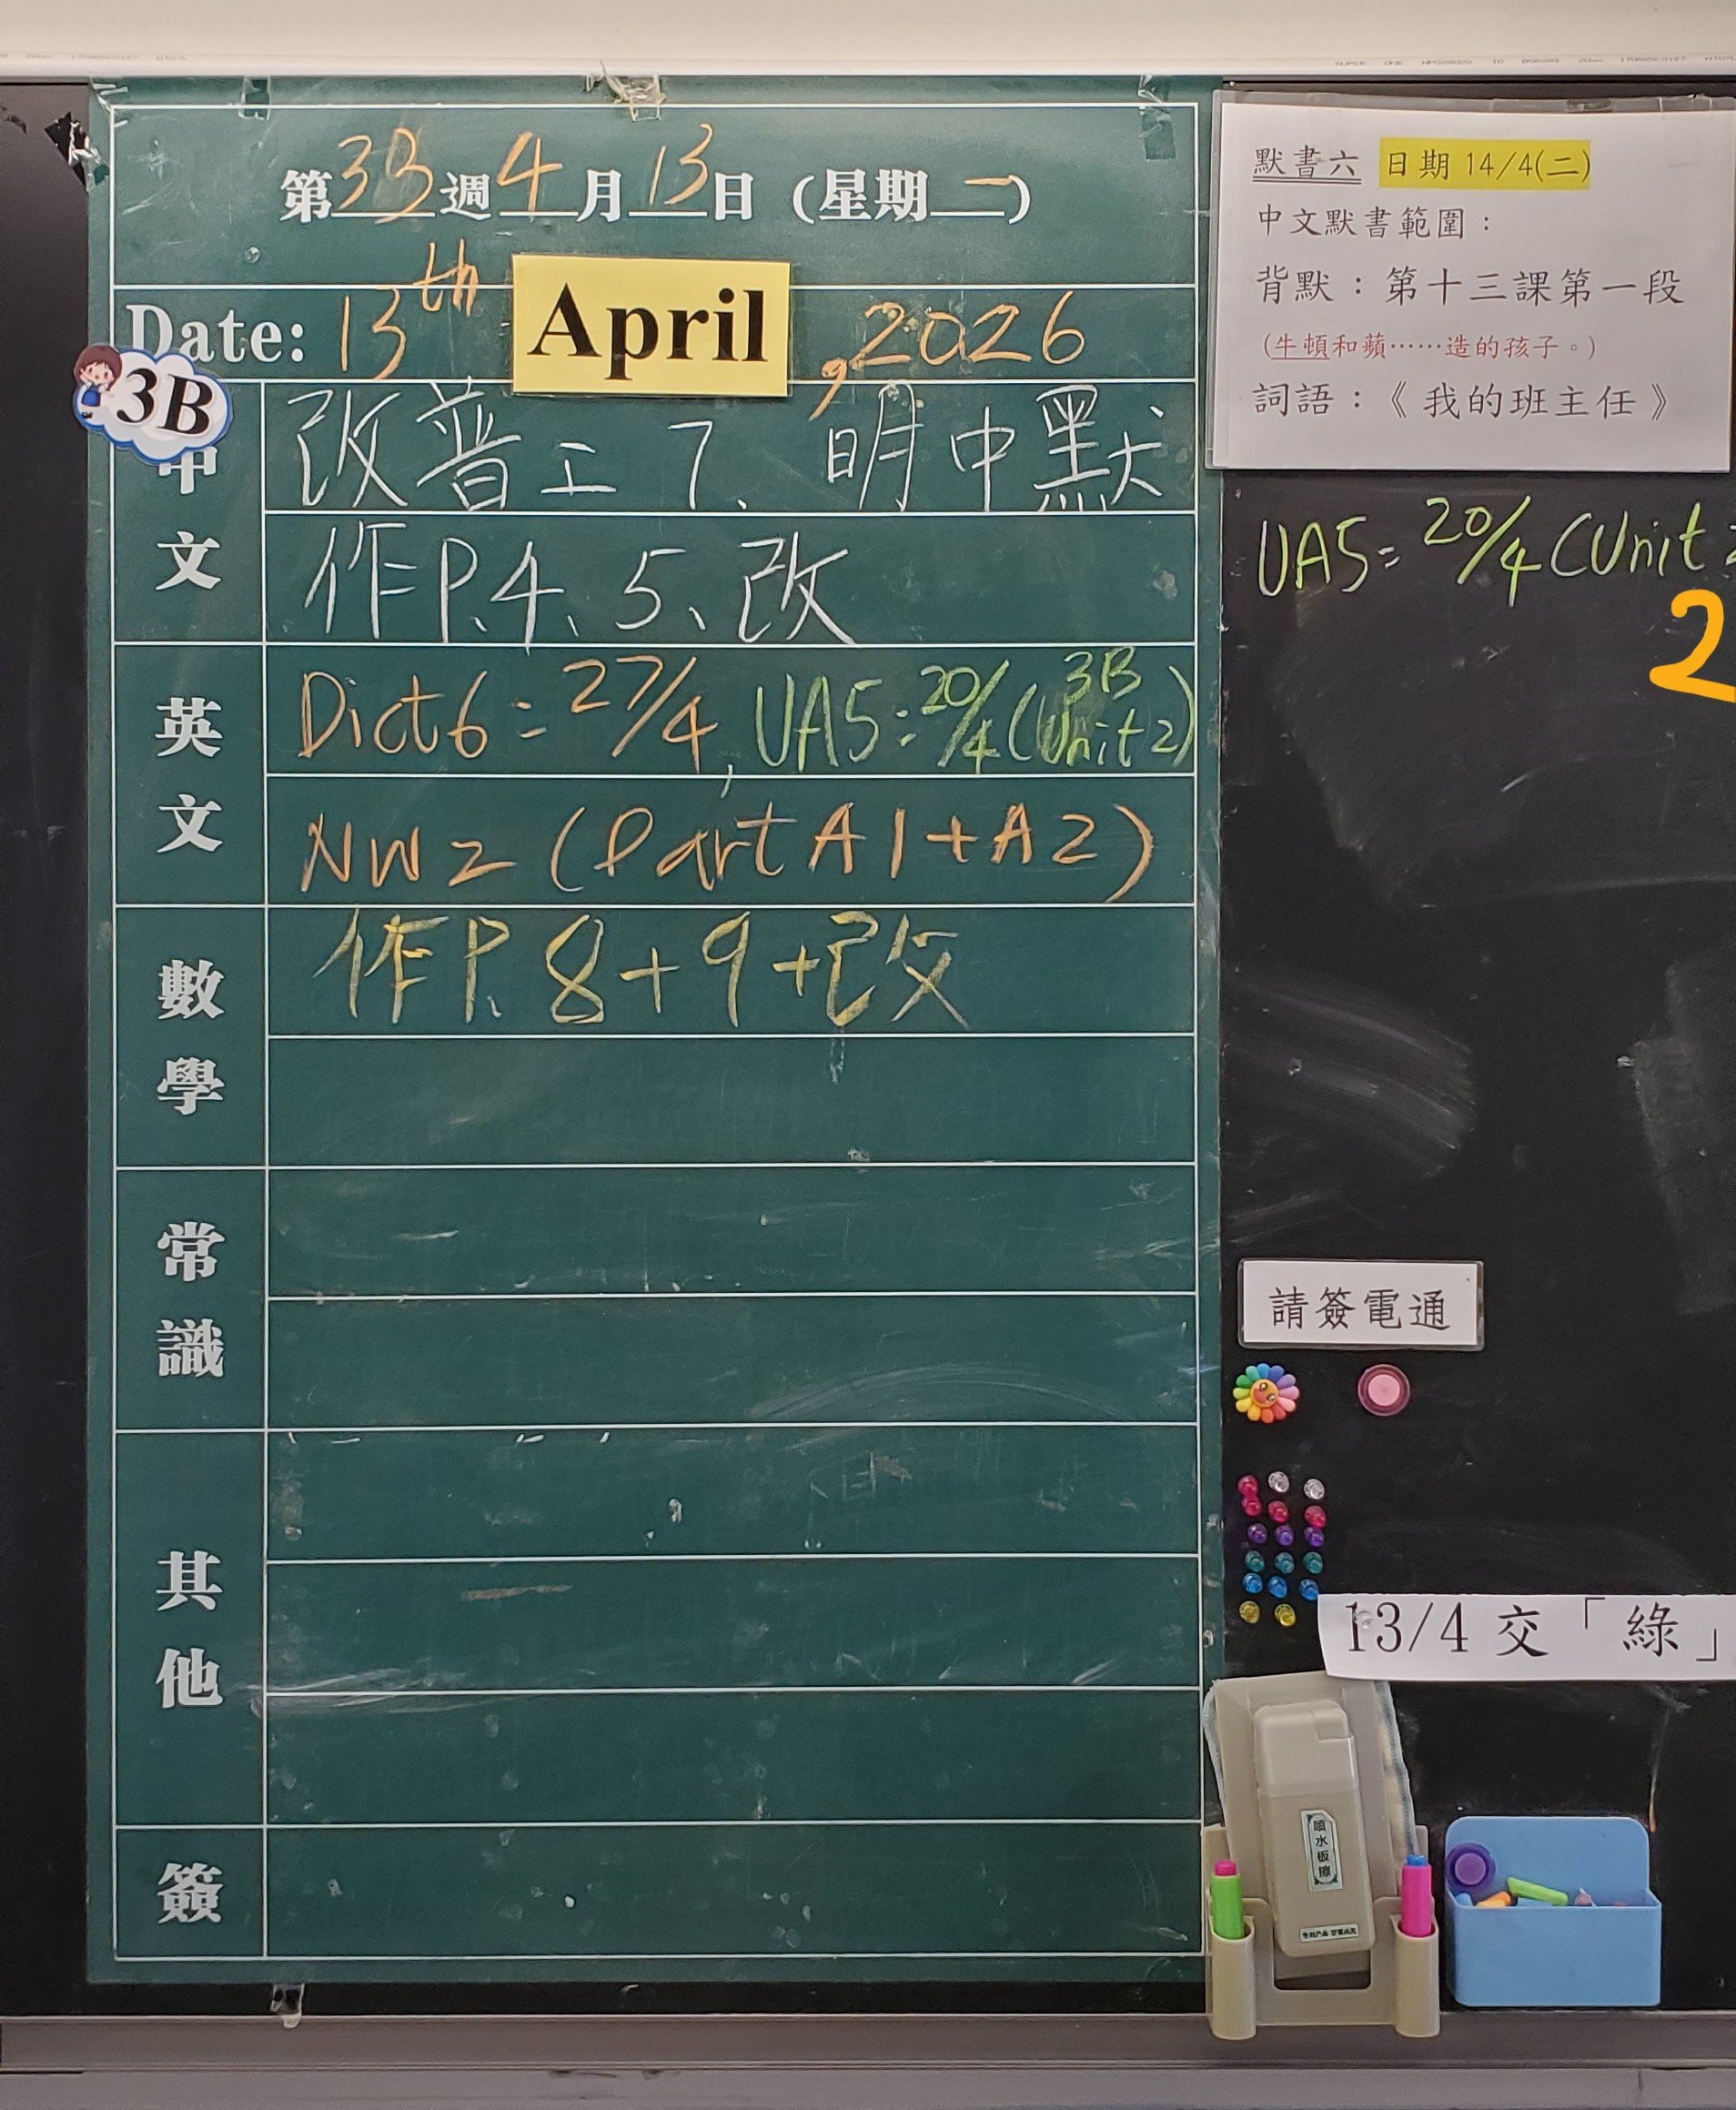 第3B週4月13日（星期一）
Date: 13th April, 2026
3B
中文
改普工7、明中默
作P.4、5、改
英文
Dict6=27/4, UA5:20/4(3B Unit2)
NW2 (Part A1+A2)
數學
作P.8+9+改
常識
其他
簽
默書六 日期14/4(二)
中文默書範圍：
背默：第十三課第一段
(牛頓和蘋⋯⋯造的孩子。)
詞語：《我的班主任》
UA5=20/4(Unit
2
請簽電通
13/4 交「綠」
噴水板擦